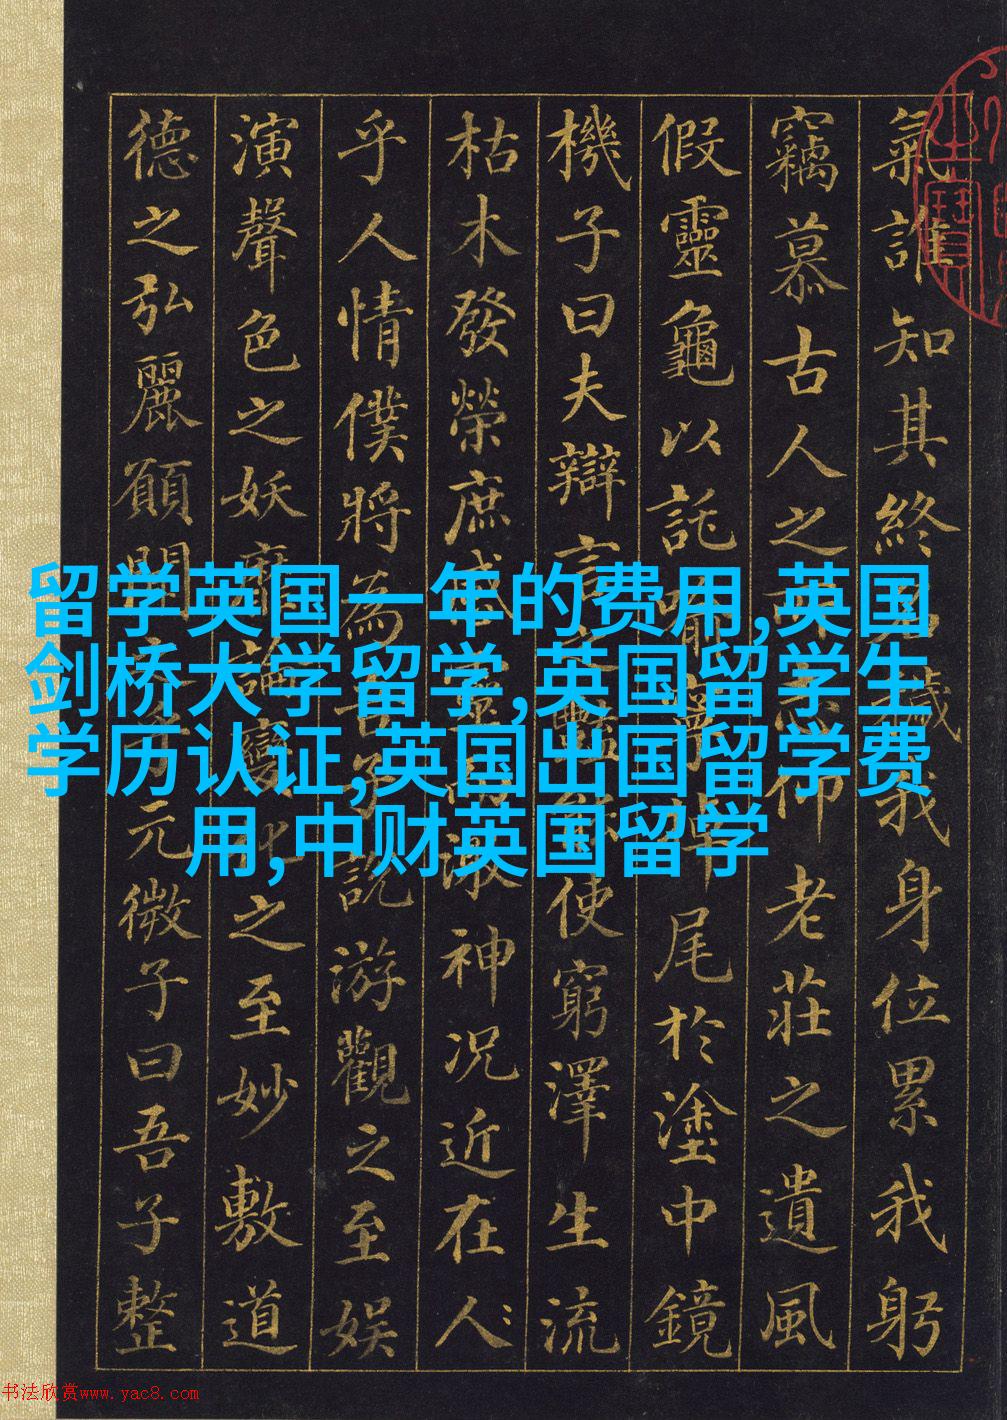 氣誰知其終名穢我身位累我躬
竊慕古人之所志仰老莊之遺風
假靈龜以託喻寧掉尾於塗中鏡
機子曰夫辯言之豔能使窮澤生流
枯木發榮庶感靈而激神況近在人
乎人情僕將為吾子說游觀之至娛
演聲色之妖靡論變化之至妙敷道
德之弘麗願聞之乎元微子曰吾子整
留学英国一年的费用,英国
剑桥大学留学,英国留学生
学历认证,英国出国留学费
用,中财英国留学
书法欣赏www.yac8.com